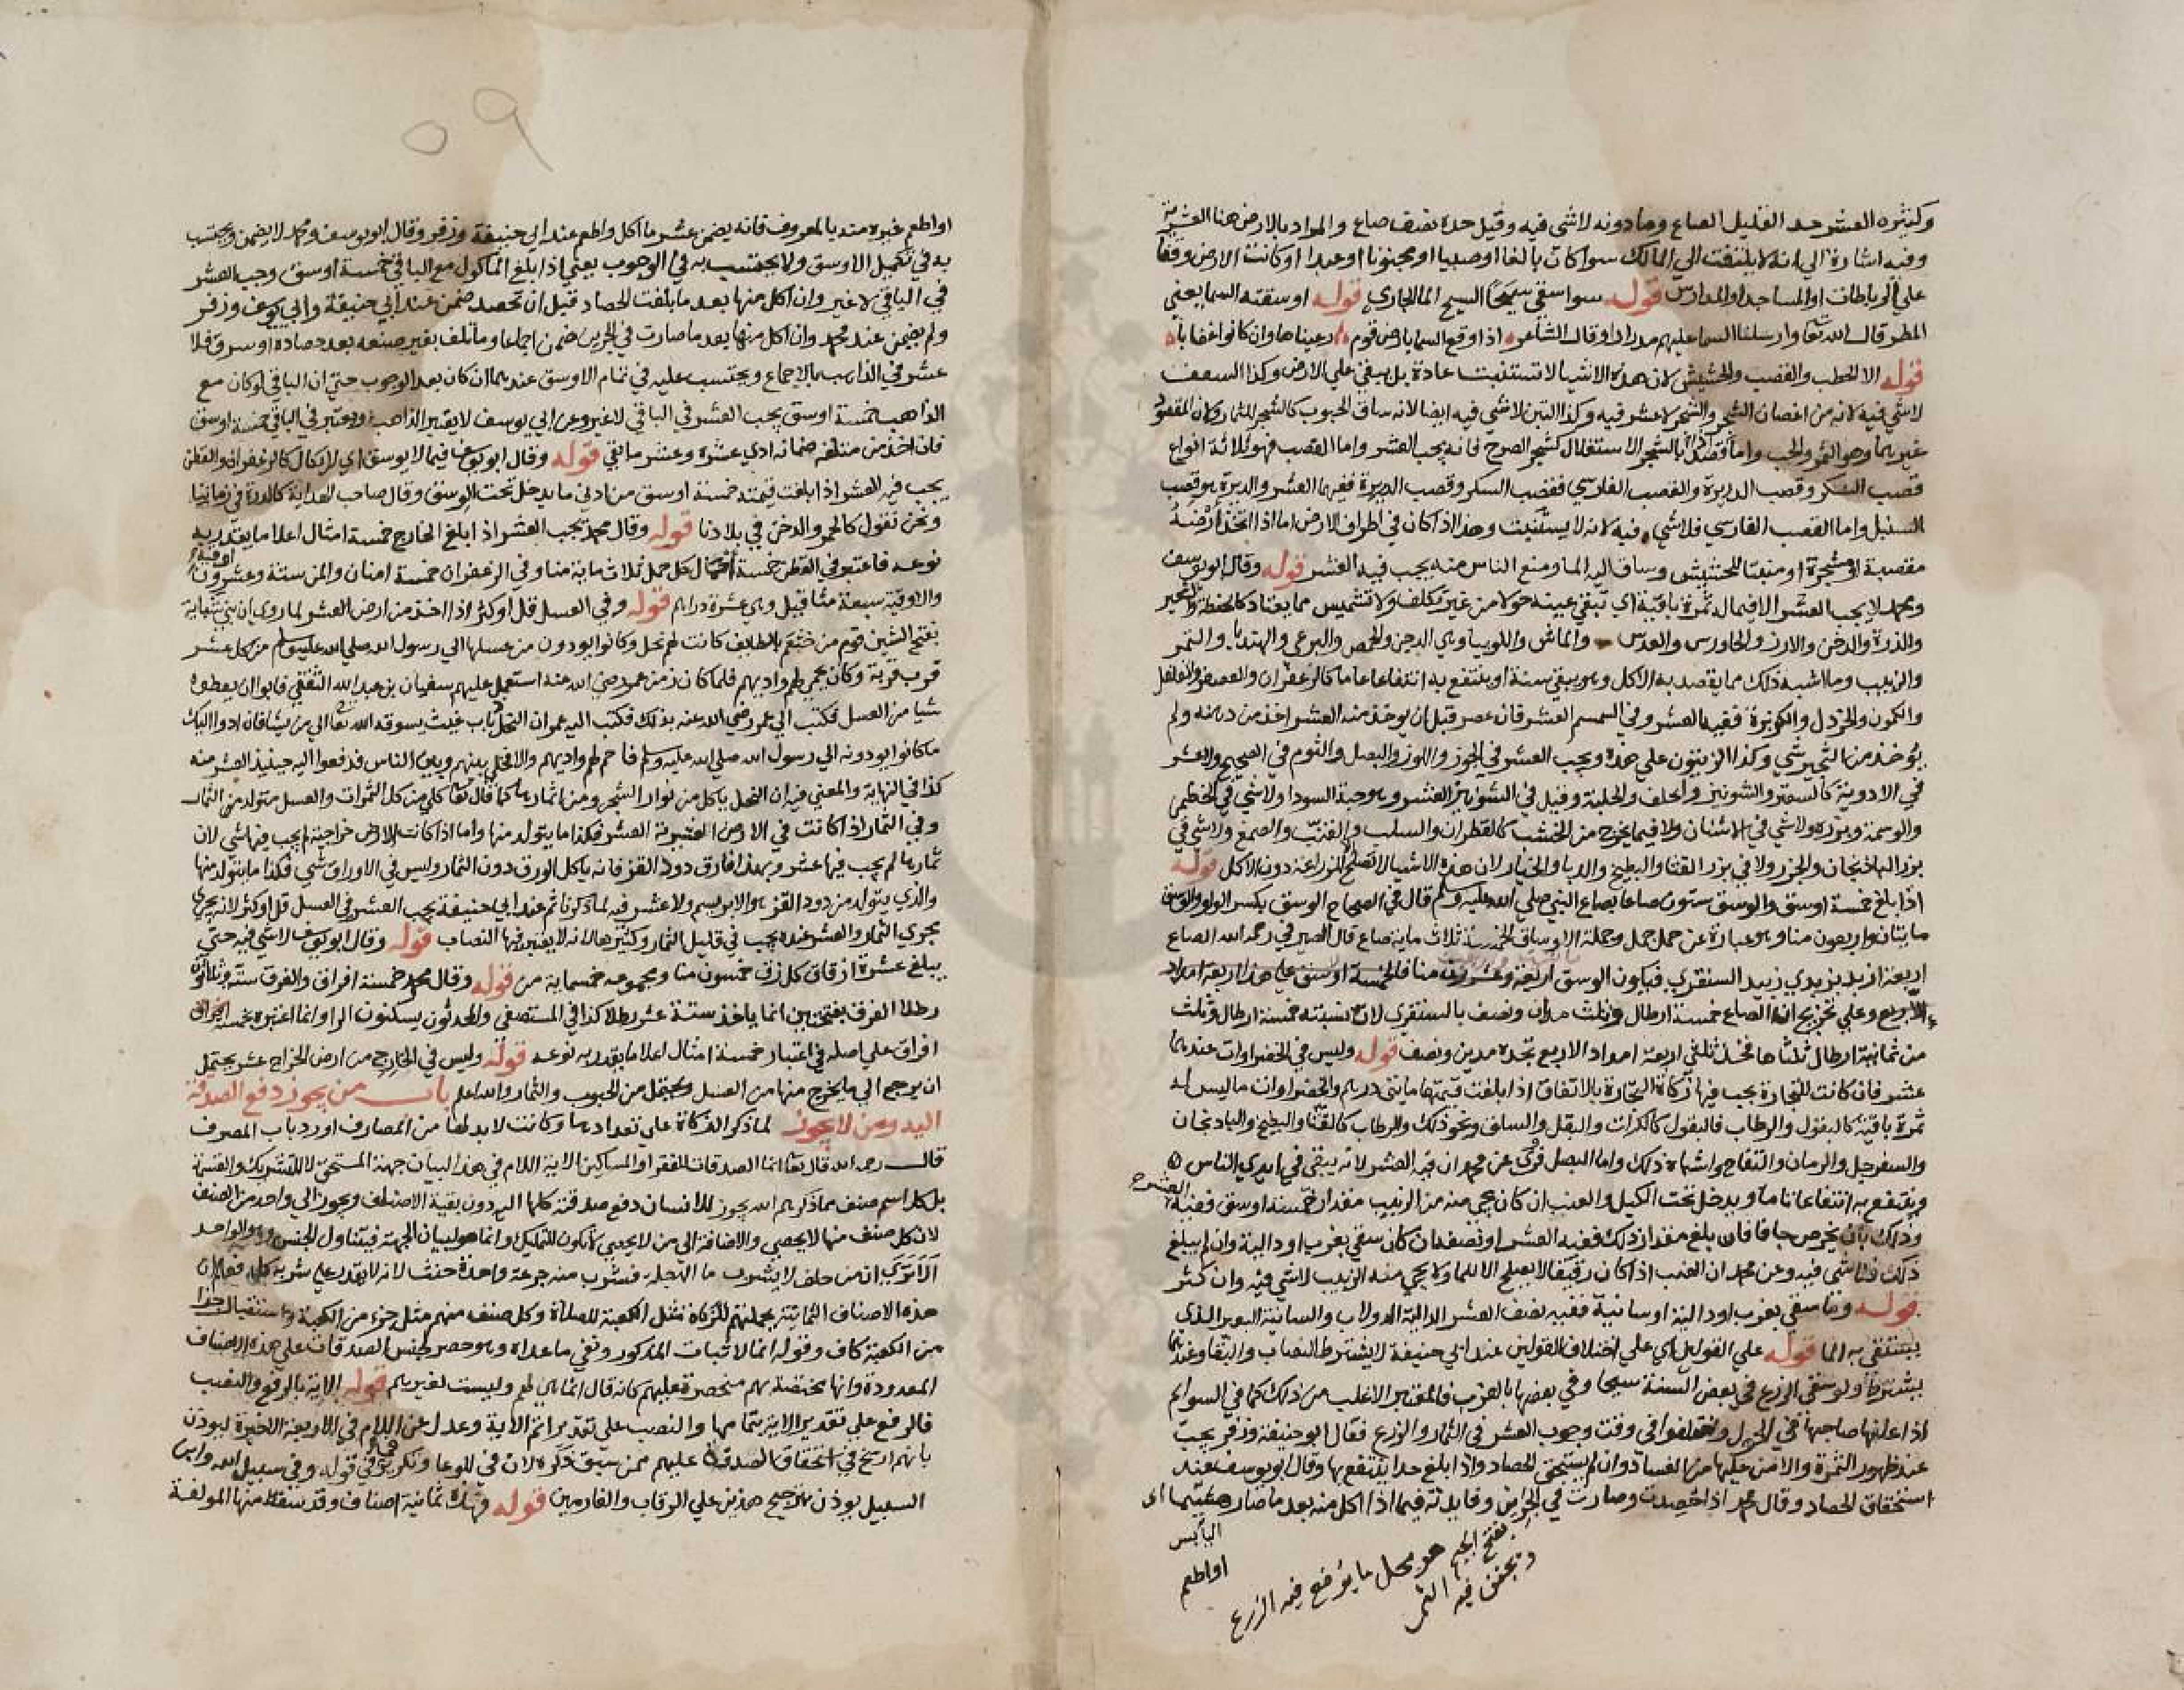 وكثيره العشر حد القليل الصاع وما دونه لا شي فيه وقيل حده نصف صاع والمراد بالارض هنا العشرية
وفيه اشارة الى انه لا يلتفت الي المالك سوا كان بالغا او صبيا او مجنونا او عبدا او كانت الارض وقفا
علي الرباطات او المساجد او المدارس قوله سوا سقي سيحا السيح الما الجاري قوله او سقته السما يعني
المطر قال الله تعا وارسلنا السما عليهم مدرارا وقال الشاعر اذا وقع السما بارض قوم رعيناها وان كانوا غضابا
قوله الا الحطب والقصب والحشيش لان هذه الاشيا لا تستنبت عادة بل يبقي علي الارض وكذا السعف
لا شي فيه لانه من اغصان الشجر والشجر لا عشر فيه وكذا التبن لا شي فيه ايضا لانه ساق الحبوب كالشجر للثمار ولان المقصود
غيرهما وهو الثمر والحب واما اذا قصد بالشجر الاستغلال كشجر الصرح فانه يجب العشر واما القصب فهو ثلاثة انواع
قصب السكر وقصب الذريرة والقصب الفارسي فقصب السكر وقصب الذريرة ففيهما العشر والذريرة هو قصب
السنبل واما القصب الفارسي فلا شي فيه لانه لا يستنبت وهذا اذا كان في اطراف الارض اما اذا اتخذ ارضه
مقصبة او مشجرة او منبتا للحشيش وساق اليه الما ومنع الناس منه يجب فيه العشر قوله وقال ابو يوسف
ومحمد لا يجب العشر الا فيما له ثمرة باقية اي تبقي عينه حولا من غير تكلف ولا تشميس مما يعتاد كالحنطة والشعير
والذرة والدخن والارز والجاورس والعدس والماش واللوبيا وهي الدجن والحمص والهندبا والتمر
والزبيب وما اشبه ذلك مما يقصد به الاكل وهو يبقي سنة او ينتفع به انتفاعا عاما كالزعفران والعصفر والفلفل
والكمون والخردل والكزبرة ففيها العشر وفي السمسم العشر فان عصر قبل ان يوخذ منه العشر اخذ من دهنه ولم
يوخذ من الثجير شي وكذا الزيتون علي هذه ويجب العشر في الجوز واللوز والبصل والثوم في الصحيح ولا عشر
في الادوية كالسعتر والشونيز والحلف والحلبة وقيل في الشونيز العشر وهو حبة السودا ولا شي في الخطمي
والوسمة وبزره ولا شي في الاشنان ولا فيما يخرج من الخشب كالقطران والسلب والقنب والصمغ ولا شي في
بزر الباذنجان والجزر ولا في بزر القثا والبطيخ والدبا والخيار لان هذه الاشيا لا تصلح الا للزراعة دون الاكل قوله
اذا بلغ خمسة اوسق والوسق ستون صاعا بصاع النبي صلي الله عليه وسلم قال في الصحاح الوسق بكسر الواو والوسق
مايتان واربعون منا وهو عبارة عن حمل جمل وجملة الاوساق الخمسة ثلاث ماية صاع قال الصيرفي رحمه الله الصاع
اربعة ازبد بزبدي زبيد السنقري فيكون الوسق اربعة وعشرون منا فالخمسة اوسق علي هذا اربعة امداد
الا ربع وعلي تخريج ان الصاع خمسة ارطال وثلث مدان ونصف بالسنقري لان نسبته خمسة ارطال وثلث
من ثمانية ارطال ثلثاها فخذ ثلثي اربعة امداد الا ربع تجده مدين ونصف قوله وليس في الخضراوات عندهما
عشر فان كانت للتجارة يجب فيها زكاة التجارة بالاتفاق اذا بلغت قيمتها مايتي درهم والخضراوات ما ليس له
ثمرة باقية كالبقول والرطاب فالبقول كالكراث والبقل والسلق ونحو ذلك والرطاب كالقثا والبطيخ والباذنجان
والسفرجل والرمان والتفاح واشباه ذلك واما البصل فروي عن محمد ان فيه العشر لانه يبقي في ايدي الناس
وينتفع به انتفاعا عاما ويدخل تحت الكيل والعنب ان كان يجي منه من الزبيب مقدار خمسة اوسق ففيه العشر
وذلك بان يخرص جافا فان بلغ مقدار ذلك ففيه العشر او نصفه ان كان سقي بغرب او دالية وان لم يبلغ
ذلك فلا شي فيه وعن محمد ان العنب اذا كان رقيقا لا يصلح الا للما ولا يجي منه الزبيب لا شي فيه وان كثر
قوله وما سقي بغرب او دالية او سانية ففيه نصف العشر الدالية الدولاب والسانية البعير الذي
يستقي به الما قوله علي القولين اي علي اختلاف القولين عند ابي حنيفة لا يشترط النصاب والبقا وعندهما
يشترط ولو سقي الزرع في بعض السنة سيحا وفي بعضها بالغرب فالمعتبر الاغلب من ذلك كما في السوائم
اذا علفها صاحبها في الحول واختلفوا في وقت وجوب العشر في الثمار والزرع فقال ابو حنيفة وزفر يجب
عند ظهور الثمرة والامن عليها من الفساد وان لم يستحق الحصاد واذا بلغ حدا ينتفع بها وقال ابو يوسف عند
استحقاق الحصاد وقال محمد اذا حصدت وصارت في الجرين وفايدته فيما اذا اكل منه بعد ما صار هشيما اي
اليابس
او اطعم
بفتح الجيم هو محل ما يوضع فيه الزرع
ويجفف فيه التمر
٥٩
او اطعم غيره منه بالمعروف فانه يضمن عشر ما اكل واطعم عند ابي حنيفة وزفر وقال ابو يوسف ومحمد لا يضمن ويحتسب
به في تكميل الاوسق ولا يحتسب به في الوجوب يعني اذا بلغ الماكول مع الباقي خمسة اوسق وجب العشر
في الباقي لا غير وان اكل منها بعد ما بلغت الحصاد قبل ان تحصد ضمن عند ابي حنيفة وابي يوسف وزفر
ولم يضمن عند محمد وان اكل منها بعد ما صارت في الجرين ضمن اجماعا وما تلف بغير صنعه بعد حصاده او سرق فلا
عشر في الذاهب بالاجماع ويحتسب عليه في تمام الاوسق عندهما ان كان بعد الوجوب حتي ان الباقي لو كان مع
الذاهب خمسة اوسق يجب العشر في الباقي لا غير وعن ابي يوسف لا يعتبر الذاهب ويعتبر في الباقي خمسة اوسق
فان اخذ من متلفه ضمانه ادي عشره وعشر ما بقي قوله وقال ابو يوسف فيما لا يوسق اي لا يكال كالزعفران والقطن
يجب فيه العشر اذا بلغت قيمته خمسة اوسق من ادني ما يدخل تحت الوسق وقال صاحب الهداية كالذرة في زماننا
ونحن نقول كالحمر والدخن في بلادنا قوله وقال محمد يجب العشر اذا بلغ الخارج خمسة امثال اعلا ما يقدر به
نوعه فاعتبر في القطن خمسة احمال كل حمل ثلاث ماية منا وفي الزعفران خمسة امنان والمن ستة وعشرون اوقية
والاوقية سبعة مثاقيل وهي عشرة دراهم قوله وفي العسل قل او كثر اذا اخذ من ارض العشر لما روي ان بني شبابة
بفتح الشين قوم من خثعم بالطايف كانت لهم نحل وكانوا يودون من عسلها الي رسول الله صلي الله عليه وسلم من كل عشر
قرب قربة وكان يحمي لهم واديهم فلما كان زمن عمر رضي الله عنه استعمل عليهم سفيان بن عبد الله الثقفي فابوا ان يعطوه
شيا من العسل فكتب الي عمر رضي الله عنه بذلك فكتب اليه عمر ان النحل ذباب غيث يسوقه الله تعا الي من يشا فان ادوا اليك
ما كانوا يودونه الي رسول الله صلي الله عليه وسلم فاحم لهم واديهم والا فخل بينهم وبين الناس فدفعوا اليه حينئذ العشر منه
كذا في النهاية والمعني فيه ان النحل ياكل من نوار الشجر ومن اثمارها كما قال تعا كلي من كل الثمرات والعسل متولد من الثمار
وفي الثمار اذا كانت في الارض العشرية العشر فكذا ما يتولد منها واما اذا كانت الارض خراجية لم يجب فيها شي لان
ثمارها لم يجب فيها عشر وبهذا فارق دود القز فانه ياكل الورق دون الثمار وليس في الاوراق شي فكذا ما يتولد منها
والذي يتولد من دود القز هو الابريسم ولا عشر فيه لما ذكرنا ثم عند ابي حنيفة يجب العشر في العسل قل او كثر لانه يجري
مجري الثمار والعشر عنده يجب في قليل الثمار وكثيرها لانه لا يعتبر فيها النصاب قوله وقال ابو يوسف لا شي فيه حتي
يبلغ عشرة ازقاق كل زق خمسون منا ومجموعه خمسماية من قوله وقال محمد خمسة افراق والفرق ستة وثلاثون
رطلا الفرق بفتحتين انا ياخذ ستة عشر رطلا كذا في المستصفي والمحدثون يسكنون الرا وانما اعتبره خمسة افراق
افراق علي اصله في اعتبار خمسة امثال اعلا ما يقدر به نوعه قوله وليس في الخارج من ارض الخراج عشر يحتمل
ان يرجع الي ما يخرج منها من العسل ويحتمل من الحبوب والثمار والله اعلم باب من يجوز دفع الصدقة
اليه ومن لا يجوز لما ذكر الزكاة علي تعدادها وكانت لا بد لها من المصارف اورد باب المصرف
قال رحمه الله قال تعا انما الصدقات للفقرا والمساكين الاية اللام في هذا لبيان جهة المستحق لا للتشريك والقسمة
بل كل اسم صنف مما ذكرهم الله يجوز للانسان دفع صدقته كلها اليه دون بقية الاصناف ويجوز الي واحد من الصنف
لان كل صنف منها لا يحصي والاضافة الي من لا يحصي لا يكون للتمليك وانما هو لبيان الجهة فيتناول الجنس وهو الواحد
الا تري ان من حلف لا يشرب ما الدجلة فشرب منه جرعة واحدة حنث لانه لا يقدر علي شربه كله فعلم ان
هذه الاصناف الثمانية بجملتهم للزكاة مثل الكعبة للصلاة وكل صنف منهم مثل جزء من الكعبة واستقبال جزا
من الكعبة كاف وقوله انما لاثبات المذكور ونفي ما عداه وهو حصر لجنس الصدقات علي هذه الاصناف
المعدودة وانها مختصة بهم منحصرة عليهم كانه قال انما هي لهم وليست لغيرهم قوله الاية بالرفع والنصب
فالرفع علي تقدير الاية بتمامها والنصب علي تقدير اتم الاية وعدل عن اللام في الاربعة الاخيرة ليوذن
بانهم ارسخ في استحقاق الصدقة عليهم ممن سبق ذكره لان في للوعا وتكرير في في قوله وفي سبيل الله وابن
السبيل يوذن بترجيح هذين علي الرقاب والغارمين قوله فهذه ثمانية اصناف وقد سقط منها المولفة